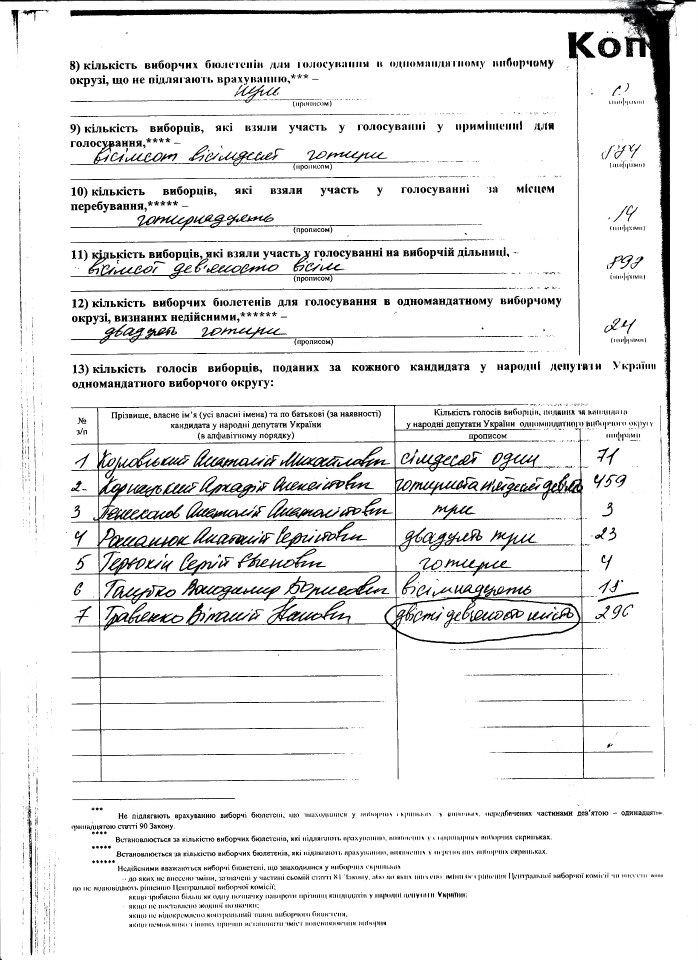 Коп
8) кількість виборчих бюлетенів для голосування в одномандатному виборчому
окрузі, що не підлягають врахуванню,*** –
нуль 0
(прописом) (цифрами)
9) кількість виборців, які взяли участь у голосуванні у приміщенні для
голосування,**** –
вісімсот вісімдесят чотири 884
(прописом) (цифрами)
10) кількість виборців, які взяли участь у голосуванні за місцем
перебування,***** –
чотирнадцять 14
(прописом) (цифрами)
11) кількість виборців, які взяли участь у голосуванні на виборчій дільниці, -
вісімсот дев'яносто вісім 898
(прописом) (цифрами)
12) кількість виборчих бюлетенів для голосування в одномандатному виборчому
окрузі, визнаних недійсними,****** –
двадцять чотири 24
(прописом) (цифрами)
13) кількість голосів виборців, поданих за кожного кандидата у народні депутати України
одномандатного виборчого округу:
№ з/п
Прізвище, власне ім'я (усі власні імена) та по батькові (за наявності)
кандидата у народні депутати України
(в алфавітному порядку)
Кількість голосів виборців, поданих за кандидата
у народні депутати України одномандатного виборчого округу
прописом цифрами
1 Анатолій Михайлович сімдесят один 71
2 Корнацький Аркадій Олексійович чотириста п'ятдесят дев'ять 459
3 Анатолій Анатолійович три 3
4 Романюк Анатолій Сергійович двадцять три 23
5 Сергій Євгенович чотири 4
6 Володимир Борисович вісімнадцять 18
7 Травянко Віталій двісті дев'яносто шість 296
***
Не підлягають врахуванню виборчі бюлетені, що знаходилися у виборчих скриньках, у випадках, передбачених частинами дев'ятою – одинадцятою,
тринадцятою статті 90 Закону.
****
Встановлюється за кількістю виборчих бюлетенів, які підлягають врахуванню, виявлених у стаціонарних виборчих скриньках.
*****
Встановлюється за кількістю виборчих бюлетенів, які підлягають врахуванню, виявлених у переносних виборчих скриньках.
******
Недійсними вважаються виборчі бюлетені, що знаходилися у виборчих скриньках
- до яких не внесено зміни, зазначені у частині сьомій статті 81 Закону, або до яких внесено зміни без рішення Центральної виборчої комісії чи внесено зміни,
що не відповідають рішенню Центральної виборчої комісії;
- якщо зроблено більш як одну позначку навпроти прізвищ кандидатів у народні депутати України;
- якщо не поставлено жодної позначки;
- якщо не відокремлено контрольний талон виборчого бюлетеня,
- якщо неможливо з інших причин встановити зміст волевиявлення виборця